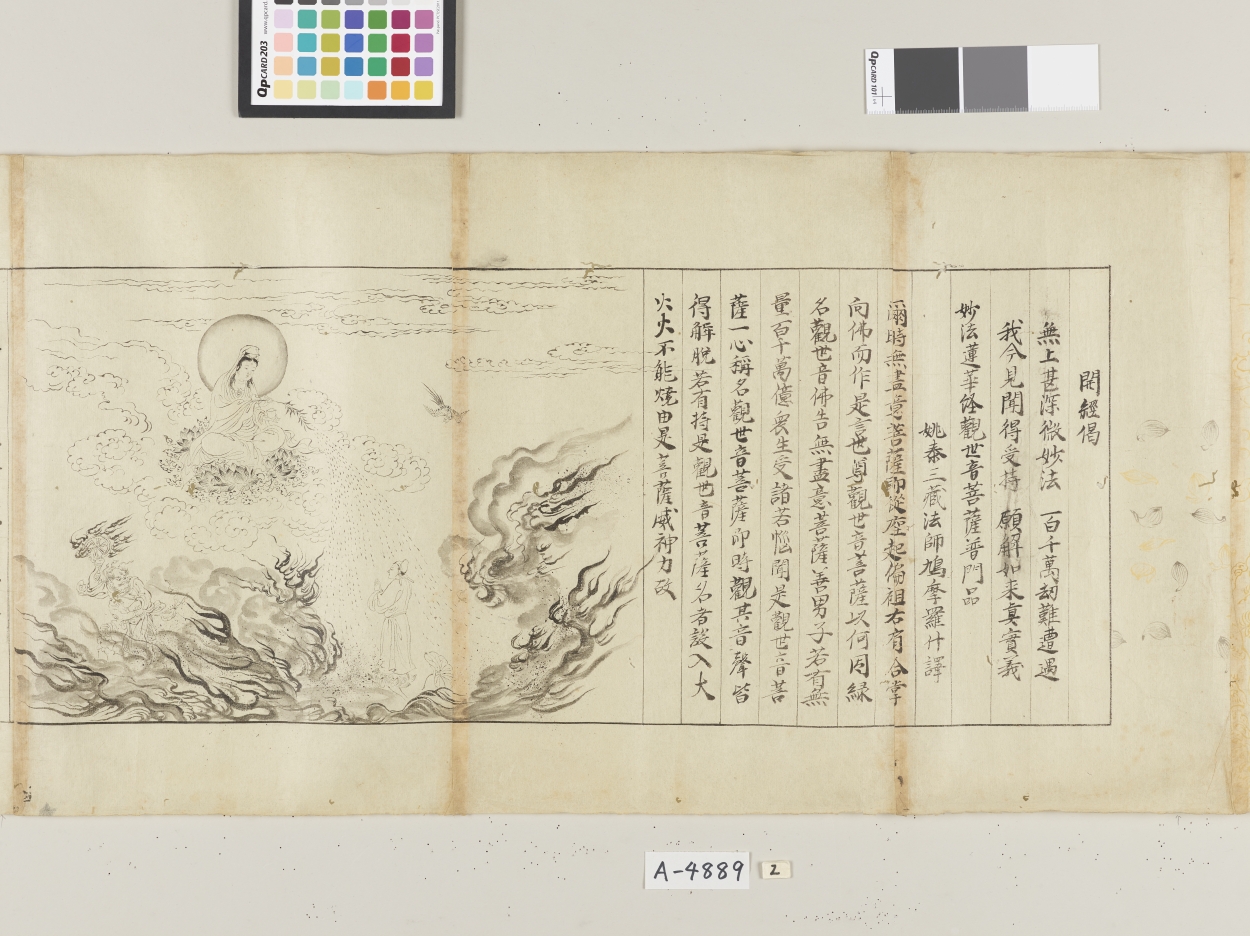 開經偈
無上甚深微妙法 百千萬劫難遭遇
我今見聞得受持 願解如来真實義
妙法蓮華経觀世音菩薩普門品
姚秦三藏法師鳩摩羅什譯
爾時無盡意菩薩即從座起偏袒右肩合掌
向佛而作是言世尊觀世音菩薩以何因緣
名觀世音佛告無盡意菩薩善男子若有無
量百千萬億衆生受諸苦惱聞是觀世音菩
薩一心稱名觀世音菩薩即時觀其音聲皆
得解脫若有持是觀世音菩薩名者設入大
火火不能燒由是菩薩威神力故
QPCARD 203
QPCARD 101
A-4889
2